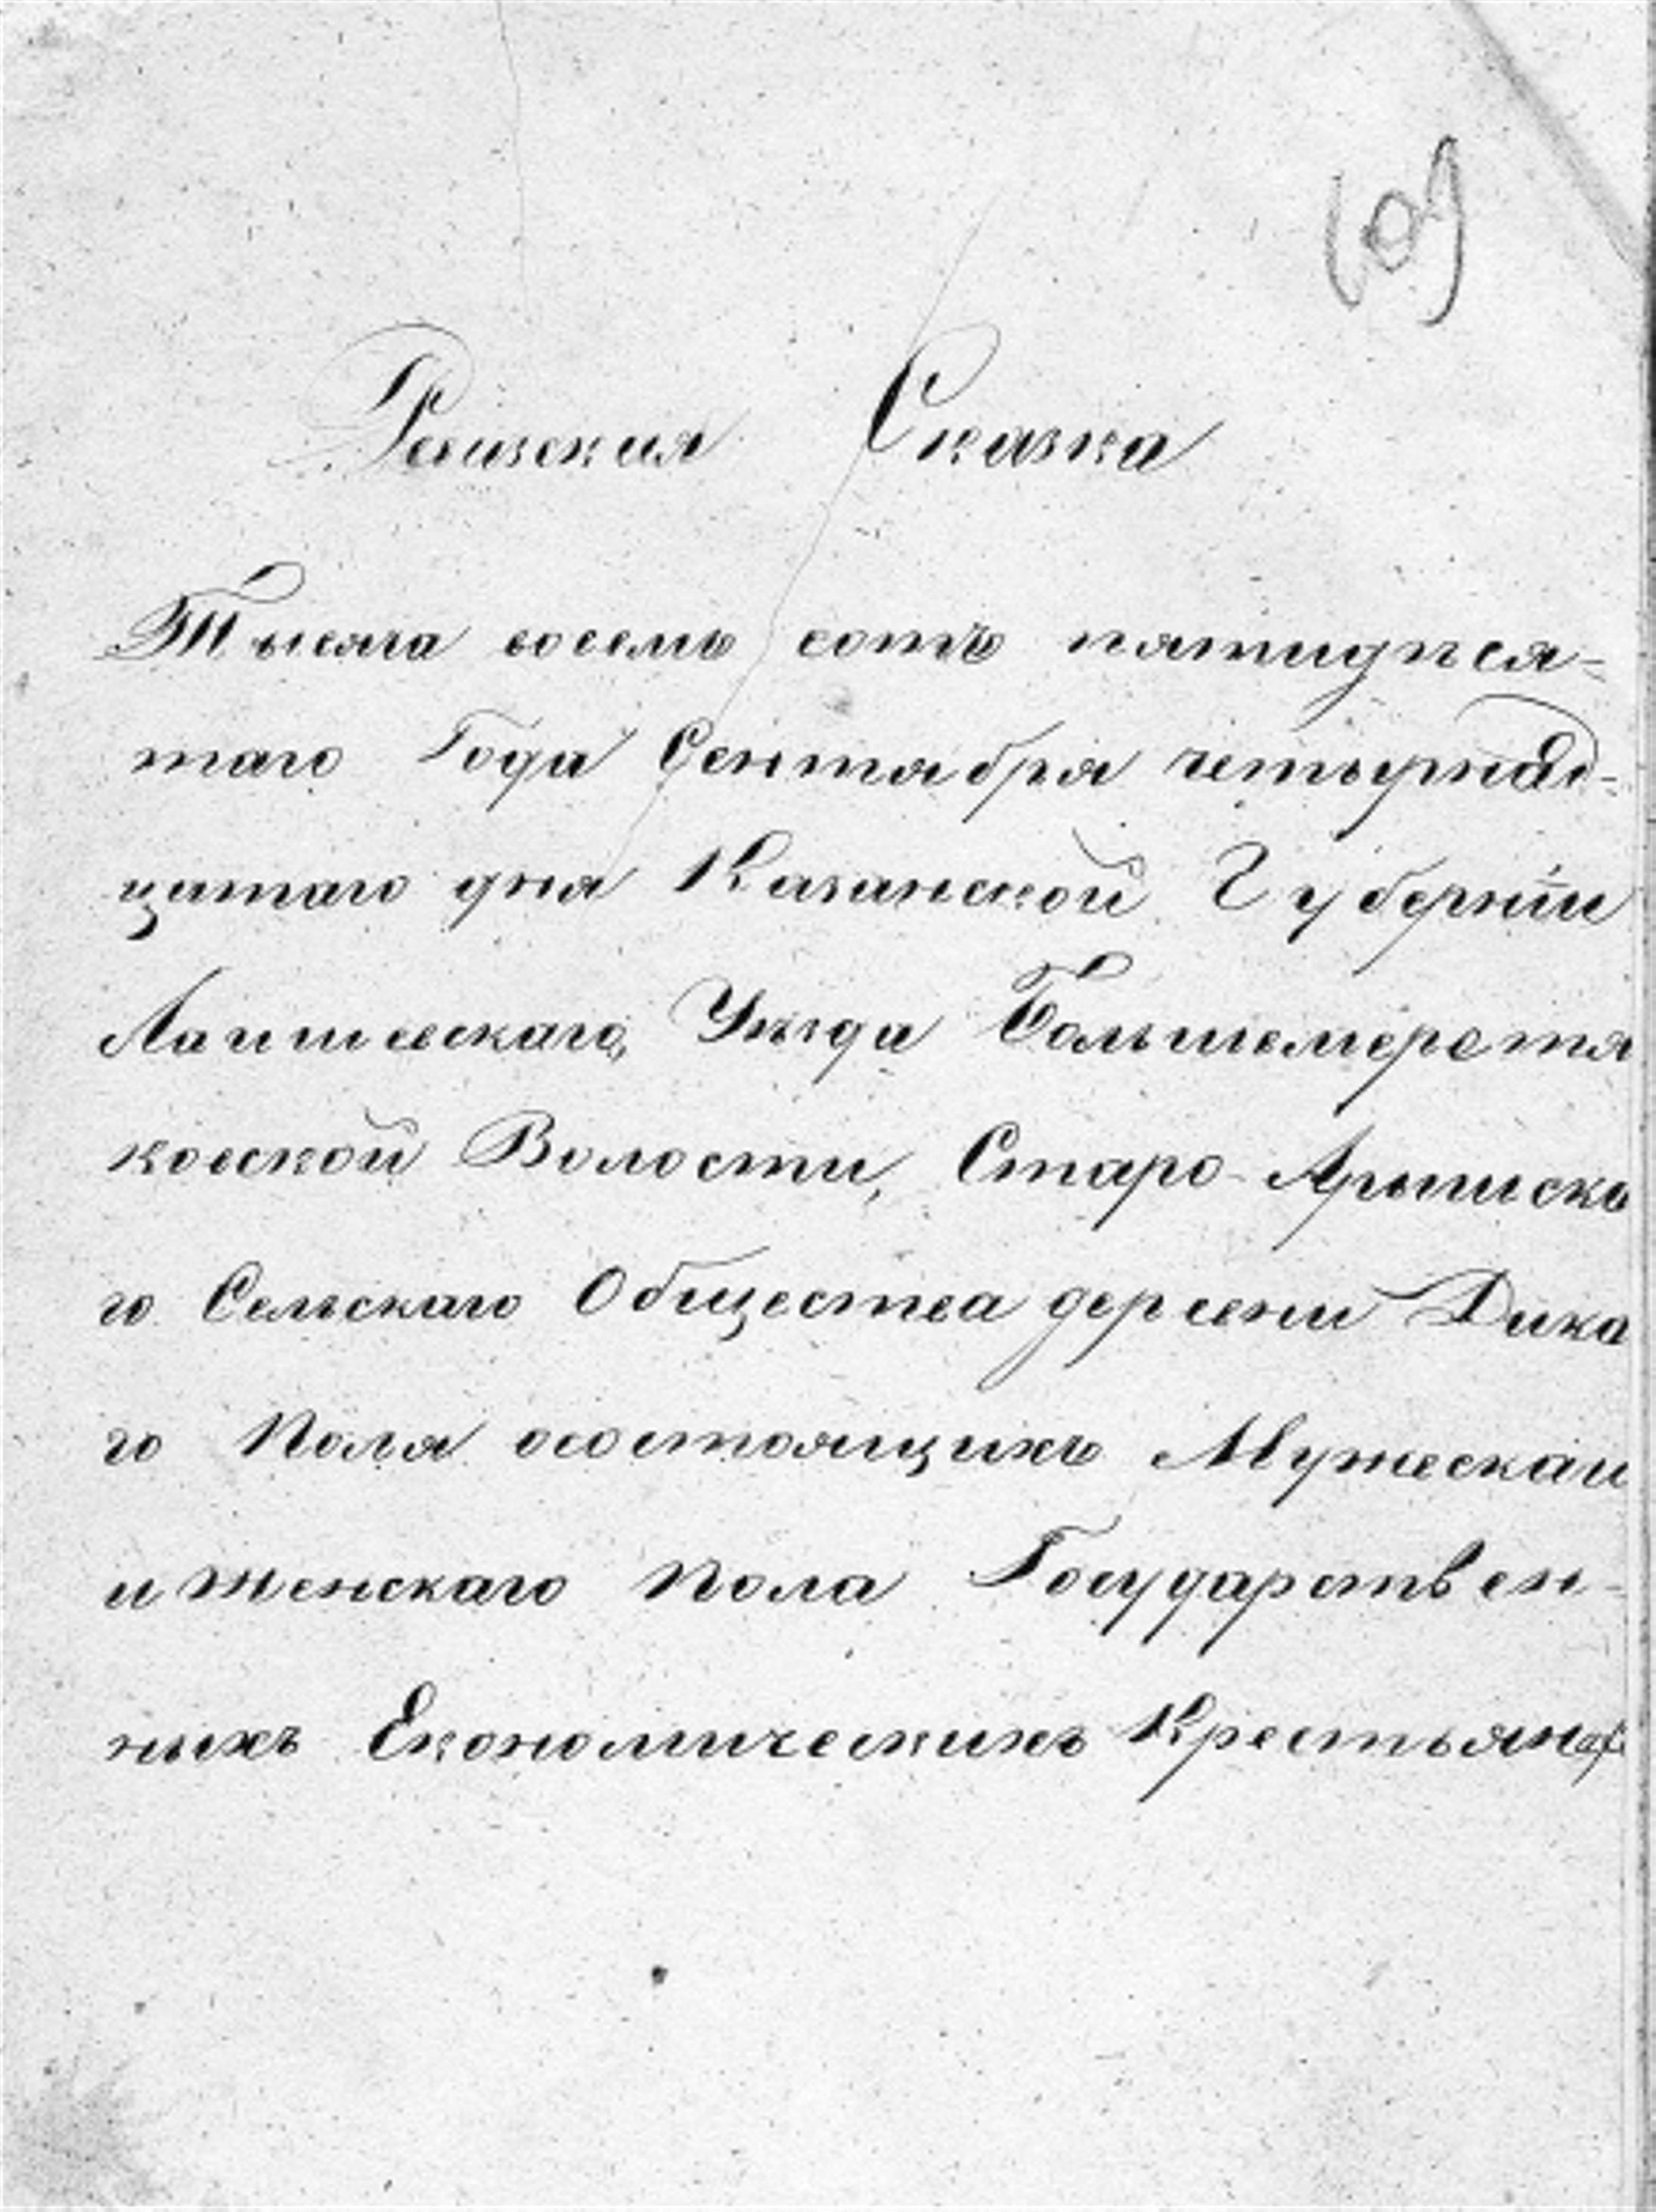 109
Ревизская Сказка
Тысяча восемь сотъ пятидеся-
таго Года Сентября четырнад-
цатаго дня Казанской Губерніи
Лаишевскаго, Уѣзда Большемеретя
ковской Волости, Старо-Арышска
го Сельскаго Общества деревни Дика
го Поля осостоящихъ Мужескаи
и женскаго пола Государствен-
ныхъ Економическихъ Крестьянах